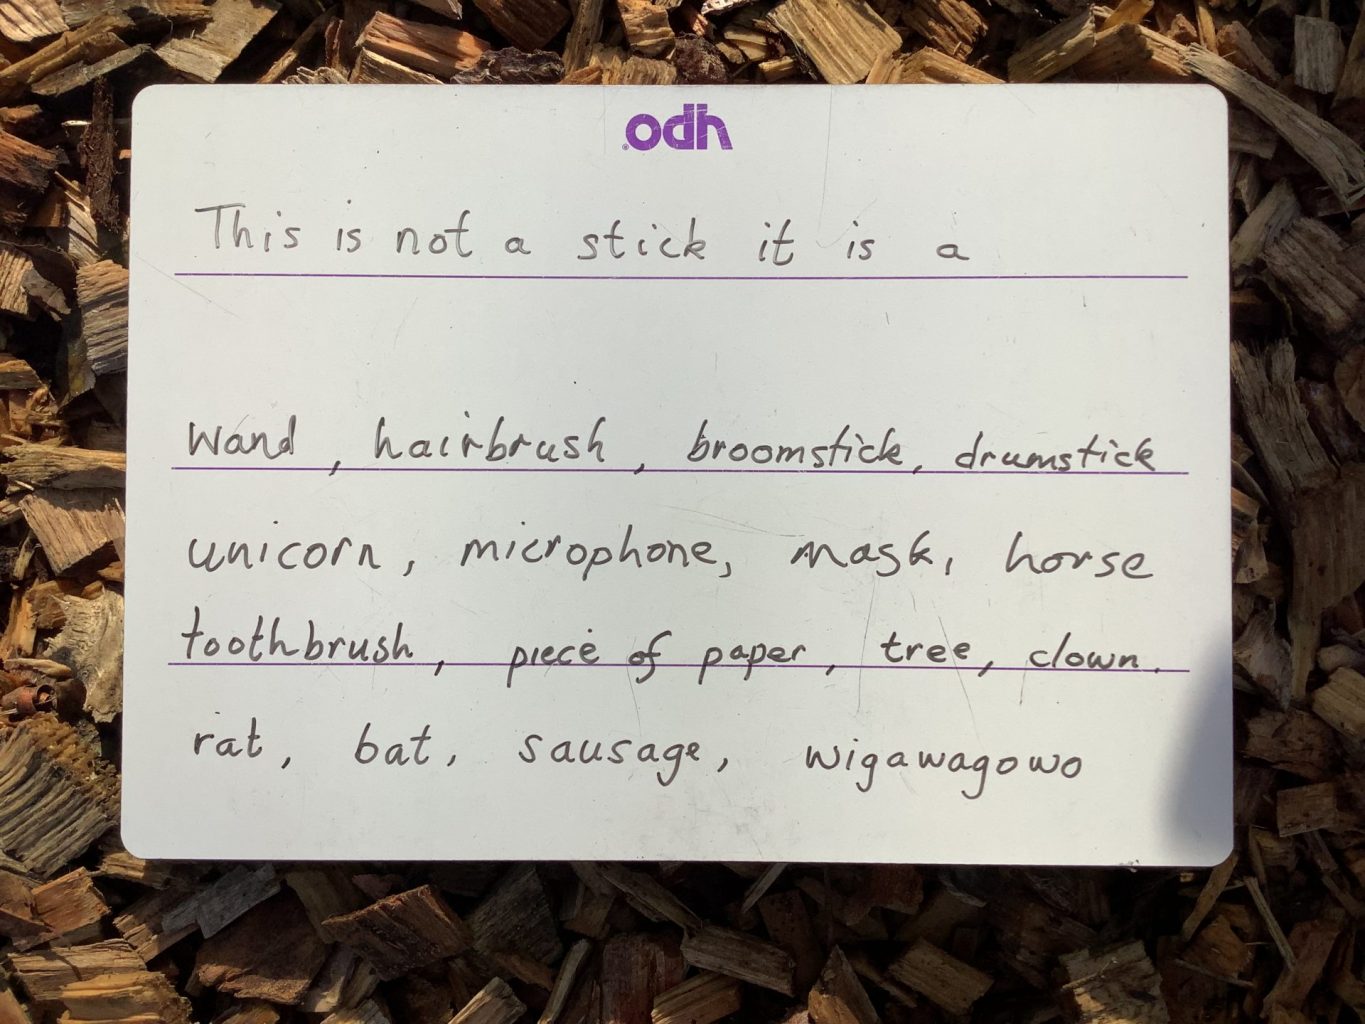 odh
This is not a stick it is a
Wand, hairbrush, broomstick, drumstick
unicorn, microphone, mask, horse
toothbrush, piece of paper, tree, clown.
rat, bat, sausage, wigawagowo